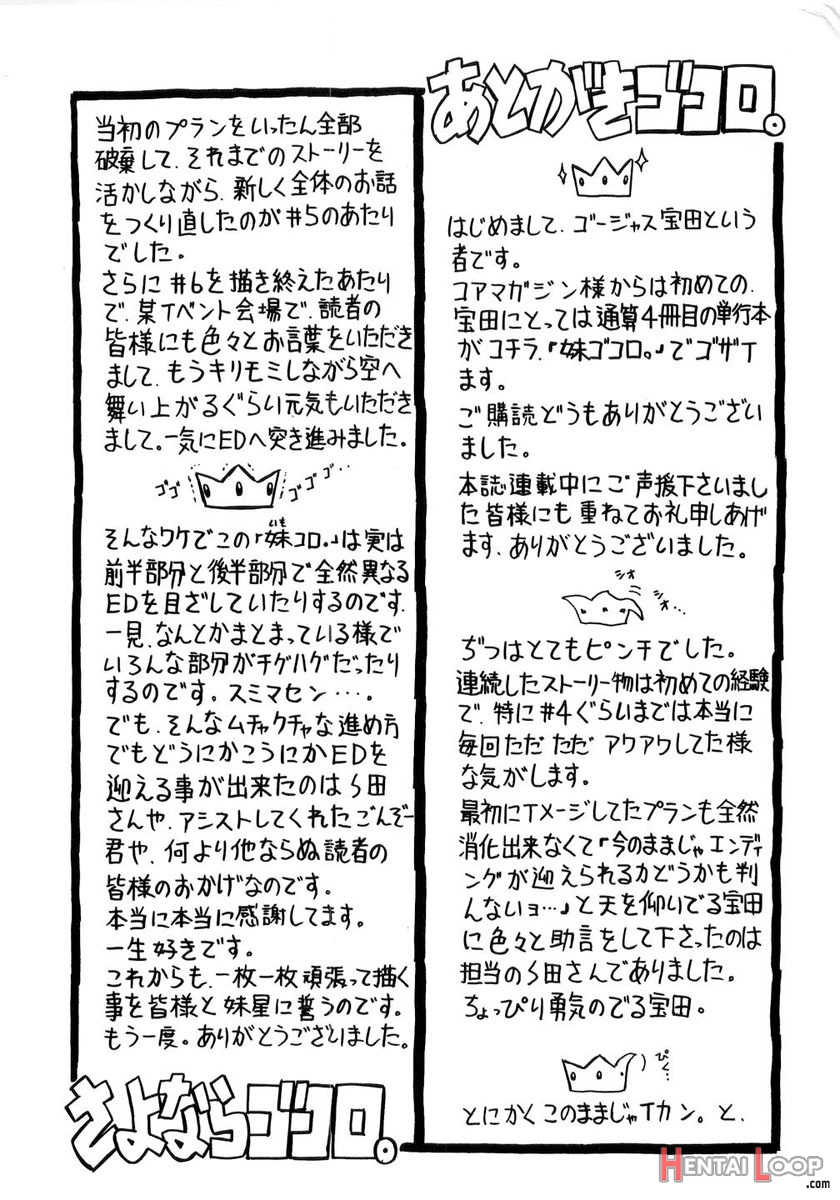 あとがきゴコロ。
はじめまして、ゴージャス宝田という
者です。
コアマガジン様からは初めての、
宝田にとっては通算4冊目の単行本
がコチラ、『妹ゴコロ。』でゴザイ
ます。
ご購読どうもありがとうござい
ました。
本誌連載中にご声援下さいまし
た皆様にも重ねてお礼申しあげ
ます、ありがとうございました。
シオ
シオ…
ぢつはとてもピンチでした。
連続したストーリー物は初めての経験
で、特に#4ぐらいまでは本当に
毎回ただただアワアワしてた様
な気がします。
最初にイメージしてたプランも全然
消化出来なくて『今のままじゃエンディ
ングが迎えられるかどうかも判
んないョ…』と天を仰いでる宝田
に色々と助言をして下さったのは
担当のS田さんでありました。
ちょっぴり勇気のでる宝田。
ぴく…
とにかくこのままじゃイカン。と、
当初のプランをいったん全部
破棄して、それまでのストーリーを
活かしながら、新しく全体のお話
をつくり直したのが#5のあたり
でした。
さらに#6を描き終えたあたり
で、某イベント会場で、読者の
皆様にも色々とお言葉をいただき
まして、もうキリモミしながら空へ
舞い上がるぐらい元気もいただき
まして。一気にEDへ突き進みました。
ゴゴゴ
ゴゴゴ…
そんなワケでこの『妹コロ。』は実は
いも
前半部分と後半部分で全然異なる
EDを目ざしていたりするのです。
一見、なんとかまとまっている様で
いろんな部分がチグハグだったり
するのです。スミマセン…。
でも、そんなムチャクチャな進め方
でもどうにかこうにかEDを
迎える事が出来たのはS田
さんや、アシストしてくれたごんぞー
君や、何より他ならぬ読者の
皆様のおかげなのです。
本当に本当に感謝してます。
一生好きです。
これからも、一枚一枚頑張って描く
事を皆様と妹星に誓うのです。
もう一度。ありがとうございました。
さよならゴコロ。
HENTAI LOOP
.com